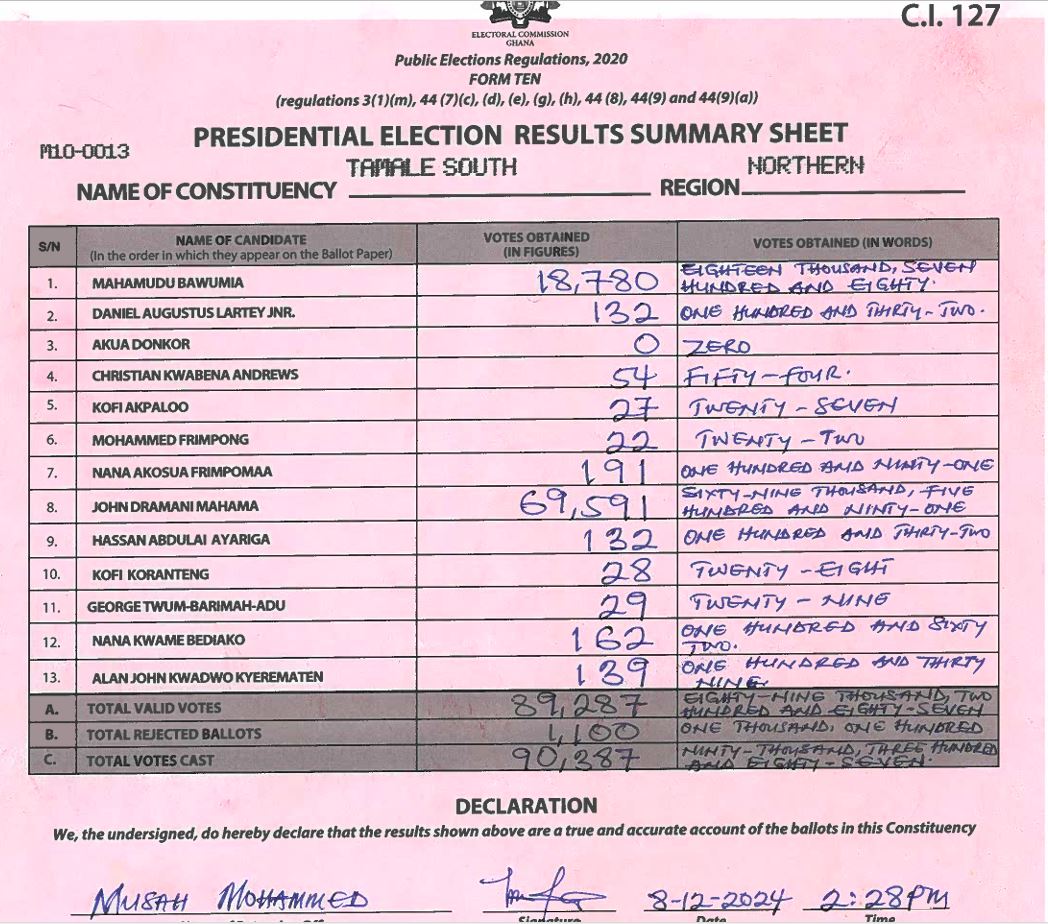 C.I. 127
ELECTORAL COMMISSION
GHANA
Public Elections Regulations, 2020
FORM TEN
(regulations 3(1)(m), 44 (7)(c), (d), (e), (g), (h), 44 (8), 44(9) and 44(9)(a))
PRESIDENTIAL ELECTION RESULTS SUMMARY SHEET
M10-0013
NAME OF CONSTITUENCY TAMALE SOUTH REGION NORTHERN
S/N NAME OF CANDIDATE (In the order in which they appear on the Ballot Paper) VOTES OBTAINED (IN FIGURES) VOTES OBTAINED (IN WORDS)
1. MAHAMUDU BAWUMIA 18,780 EIGHTEEN THOUSAND, SEVEN HUNDRED AND EIGHTY.
2. DANIEL AUGUSTUS LARTEY JNR. 132 ONE HUNDRED AND THIRTY-TWO.
3. AKUA DONKOR 0 ZERO
4. CHRISTIAN KWABENA ANDREWS 54 FIFTY-FOUR.
5. KOFI AKPALOO 27 TWENTY-SEVEN
6. MOHAMMED FRIMPONG 22 TWENTY-TWO
7. NANA AKOSUA FRIMPOMAA 191 ONE HUNDRED AND NINTY-ONE
8. JOHN DRAMANI MAHAMA 69,591 SIXTY-NINE THOUSAND, FIVE HUNDRED AND NINTY-ONE
9. HASSAN ABDULAI AYARIGA 132 ONE HUNDRED AND THIRTY-TWO
10. KOFI KORANTENG 28 TWENTY-EIGHT
11. GEORGE TWUM-BARIMAH-ADU 29 TWENTY-NINE
12. NANA KWAME BEDIAKO 162 ONE HUNDRED AND SIXTY TWO.
13. ALAN JOHN KWADWO KYEREMATEN 139 ONE HUNDRED AND THIRTY NINE.
A. TOTAL VALID VOTES 89,287 EIGHTY-NINE THOUSAND, TWO HUNDRED AND EIGHTY-SEVEN
B. TOTAL REJECTED BALLOTS 1,100 ONE THOUSAND, ONE HUNDRED
C. TOTAL VOTES CAST 90,387 NINTY-THOUSAND, THREE HUNDRED AND EIGHTY-SEVEN.
DECLARATION
We, the undersigned, do hereby declare that the results shown above are a true and accurate account of the ballots in this Constituency
MUSAH MOHAMMED 8-12-2024 2:28PM
Signature Date Time